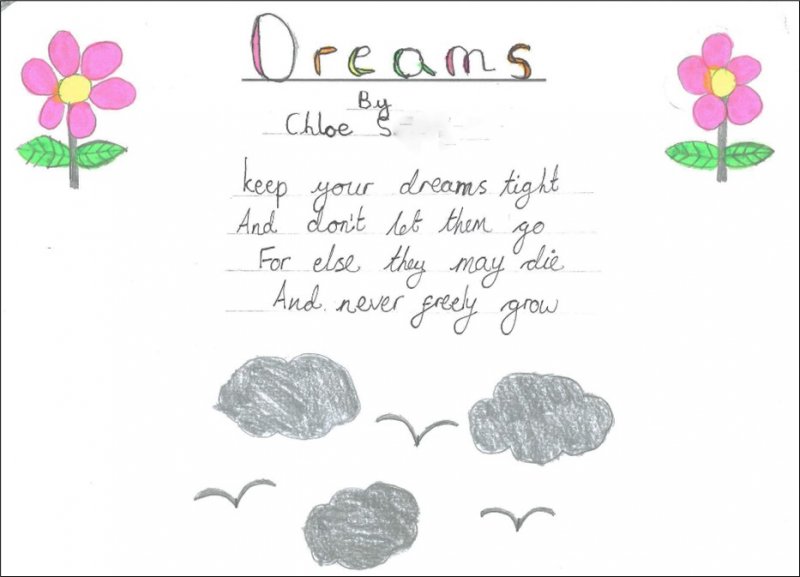 Dreams
By
Chloe S
keep your dreams tight
And don't let them go
For else they may die
And never freely grow